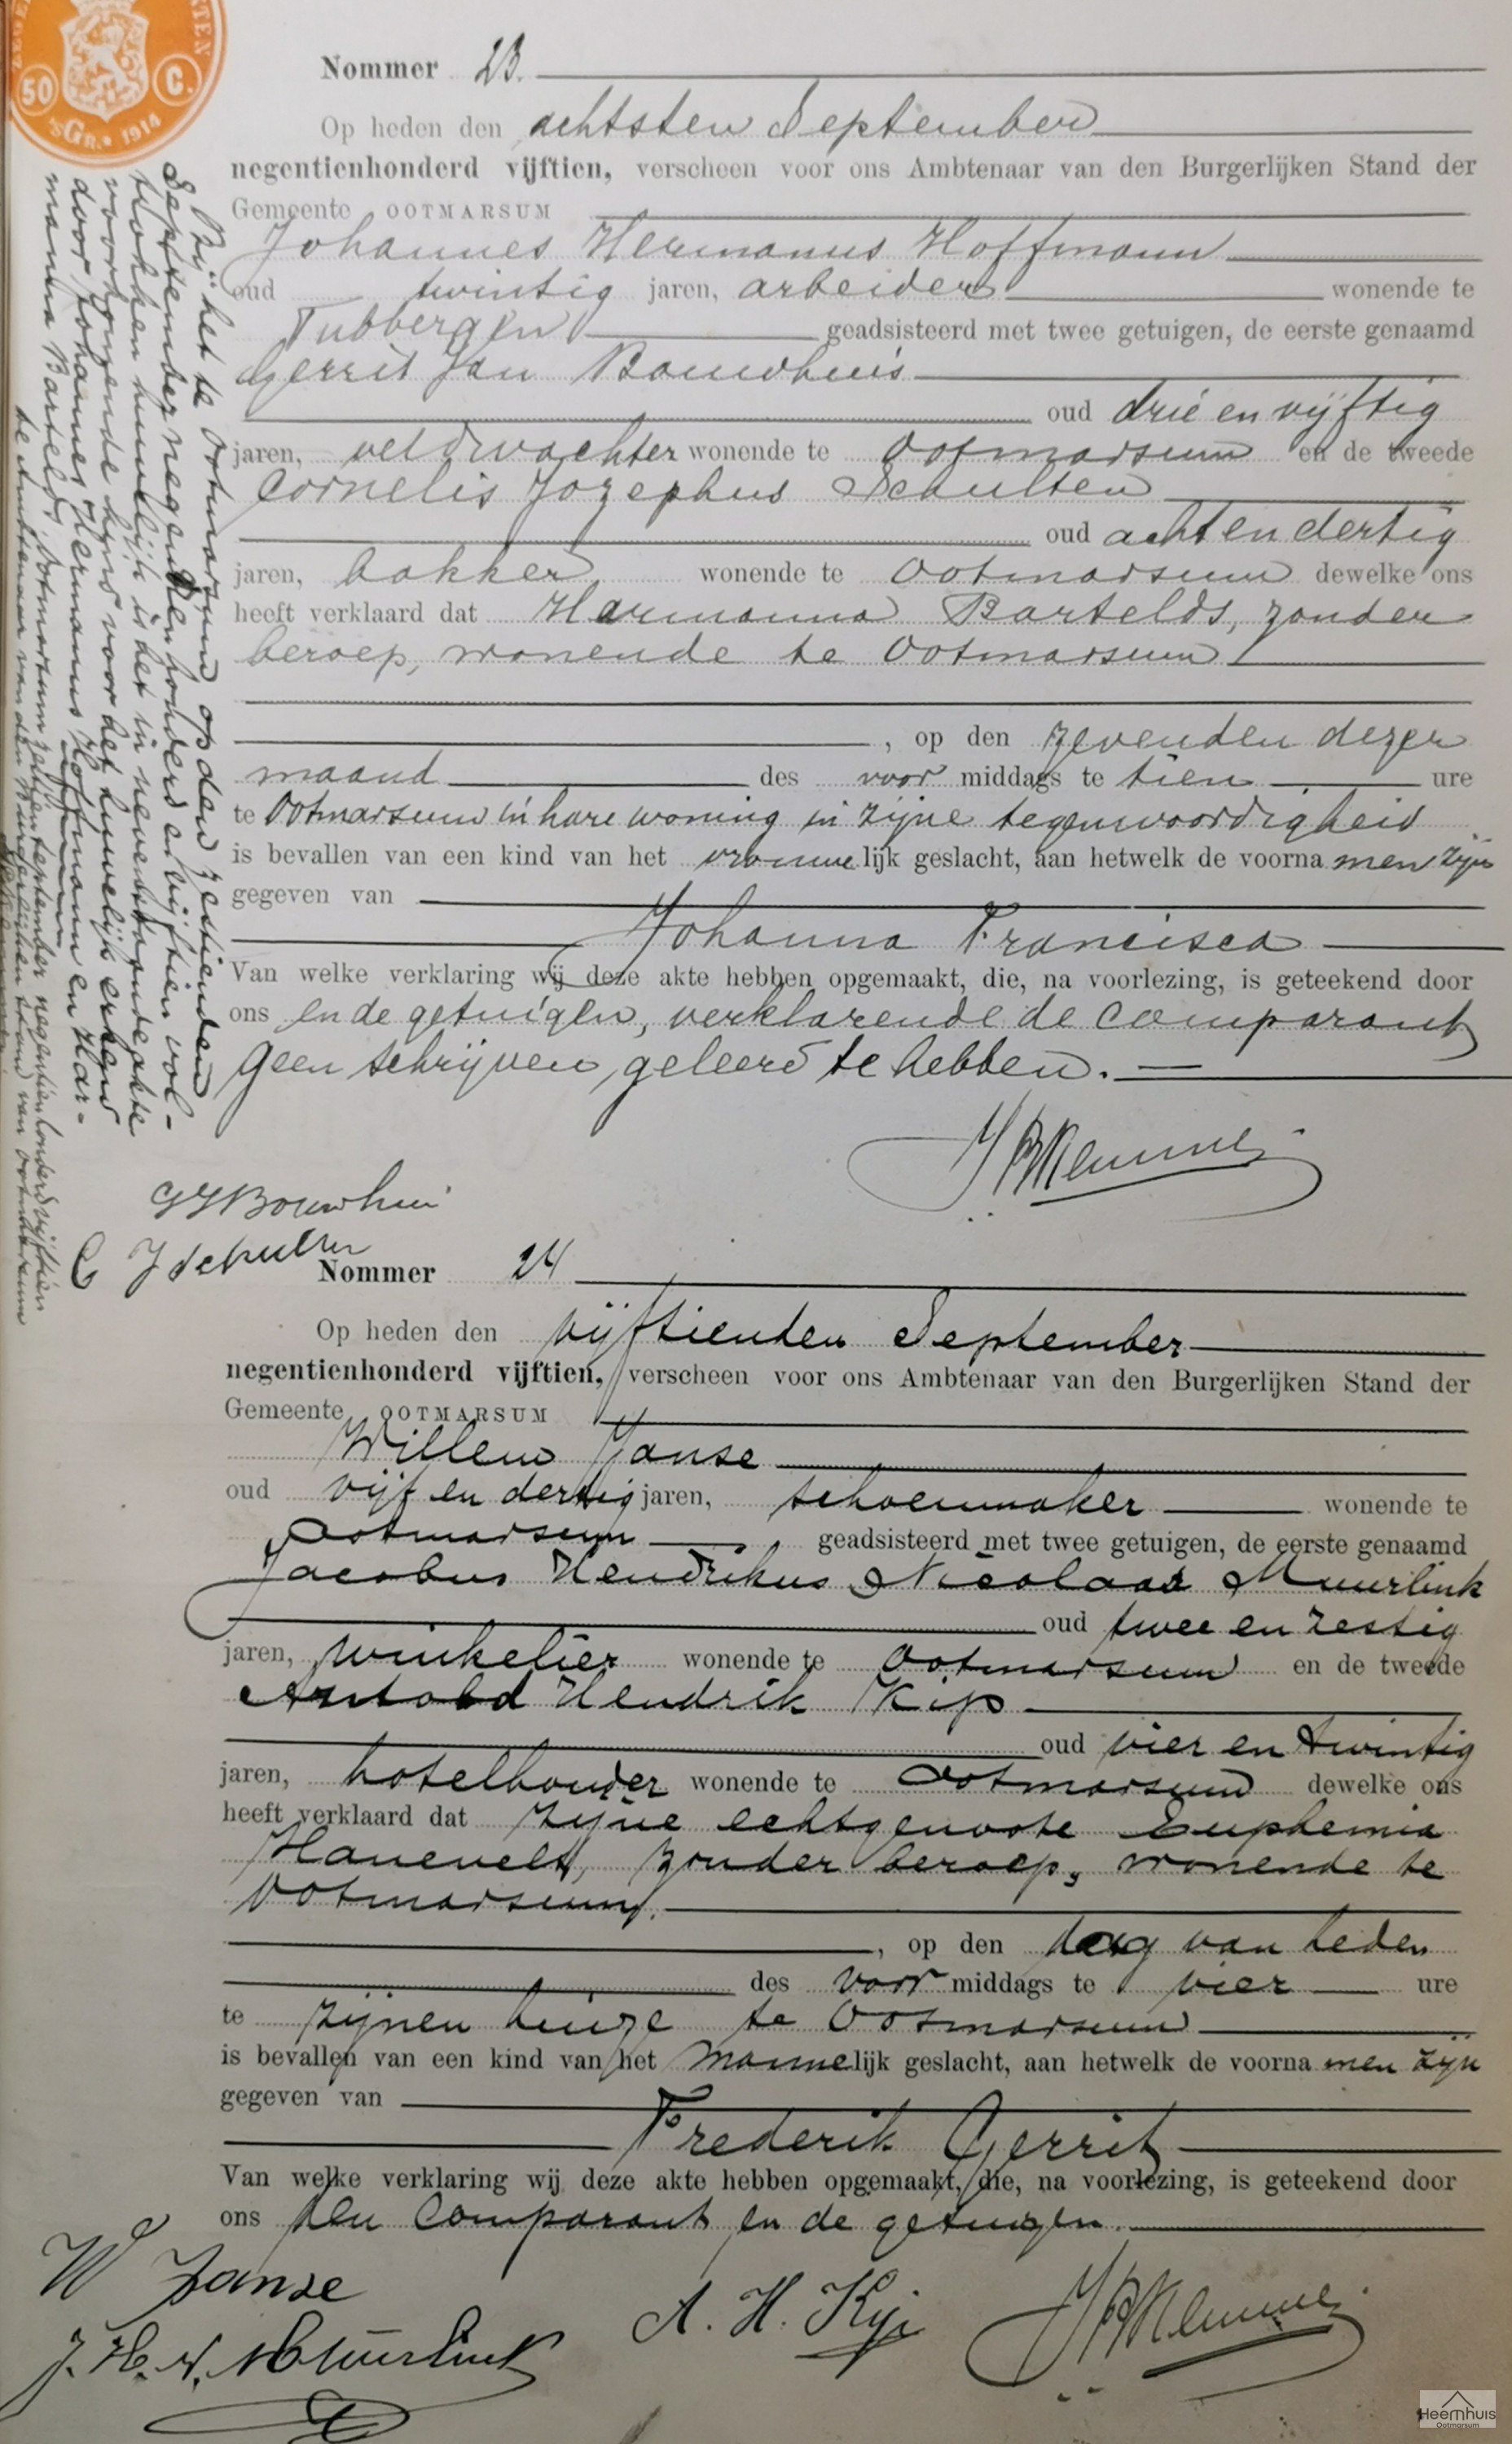 50 C.
'sGr. 1914
Nommer 23.
Op heden den achtsten September
negentienhonderd vijftien, verscheen voor ons Ambtenaar van den Burgerlijken Stand der
Gemeente OOTMARSUM
Johannes Hermanus Hoffmann
oud twintig jaren, arbeider wonende te
Tubbergen geadsisteerd met twee getuigen, de eerste genaamd
Gerrit Jan Bouwhuis
oud drie en vijftig
jaren, veldwachter wonende te Ootmarsum en de tweede
Cornelis Jozephus Schulten
oud acht en dertig
jaren, bakker wonende te Ootmarsum dewelke ons
heeft verklaard dat Harmanna Bartelds, zonder
beroep, wonende te Ootmarsum
, op den zevenden dezer
maand des voor middags te tien ure
te Ootmarsum in hare woning in zijne tegenwoordigheid
is bevallen van een kind van het vrouwelijk geslacht, aan hetwelk de voornamen zijn
gegeven van
Johanna Francisca
Van welke verklaring wij deze akte hebben opgemaakt, die, na voorlezing, is geteekend door
ons en de getuigen, verklarende de comparant
geen schrijven geleerd te hebben.
GJ Bouwhuis
C J Schulten
Bij het te Ootmarsum op den zestienden
September negentienhonderd en vijftien vol-
trokken huwelijk is het in nevenstaande akte
voorkomende kind voor het huwelijk erkend
door Johannes Hermanus Hoffmann en Har-
manna Bartelds. Ootmarsum zestien September negentienhonderd vijftien
De Ambtenaar van den Burgerlijken Stand van Ootmarsum
Nommer 24
Op heden den vijftienden September
negentienhonderd vijftien, verscheen voor ons Ambtenaar van den Burgerlijken Stand der
Gemeente OOTMARSUM
Willem Janse
oud vijf en dertig jaren, schoenmaker wonende te
Ootmarsum geadsisteerd met twee getuigen, de eerste genaamd
Jacobus Hendrikus Nicolaas Muurlink
oud twee en zestig
jaren, winkelier wonende te Ootmarsum en de tweede
Arnold Hendrik Kip
oud vier en twintig
jaren, hotelhouder wonende te Ootmarsum dewelke ons
heeft verklaard dat zijne echtgenoote Euphemia
Hanevelt, zonder beroep, wonende te
Ootmarsum.
, op den dag van heden
des voor middags te vier ure
te zijnen huize te Ootmarsum
is bevallen van een kind van het mannelijk geslacht, aan hetwelk de voornamen zijn
gegeven van
Frederik Gerrit
Van welke verklaring wij deze akte hebben opgemaakt, die, na voorlezing, is geteekend door
ons den comparant en de getuigen.
W Janse
J. H. N. Muurlink
A. H. Kip
Heemhuis
Ootmarsum